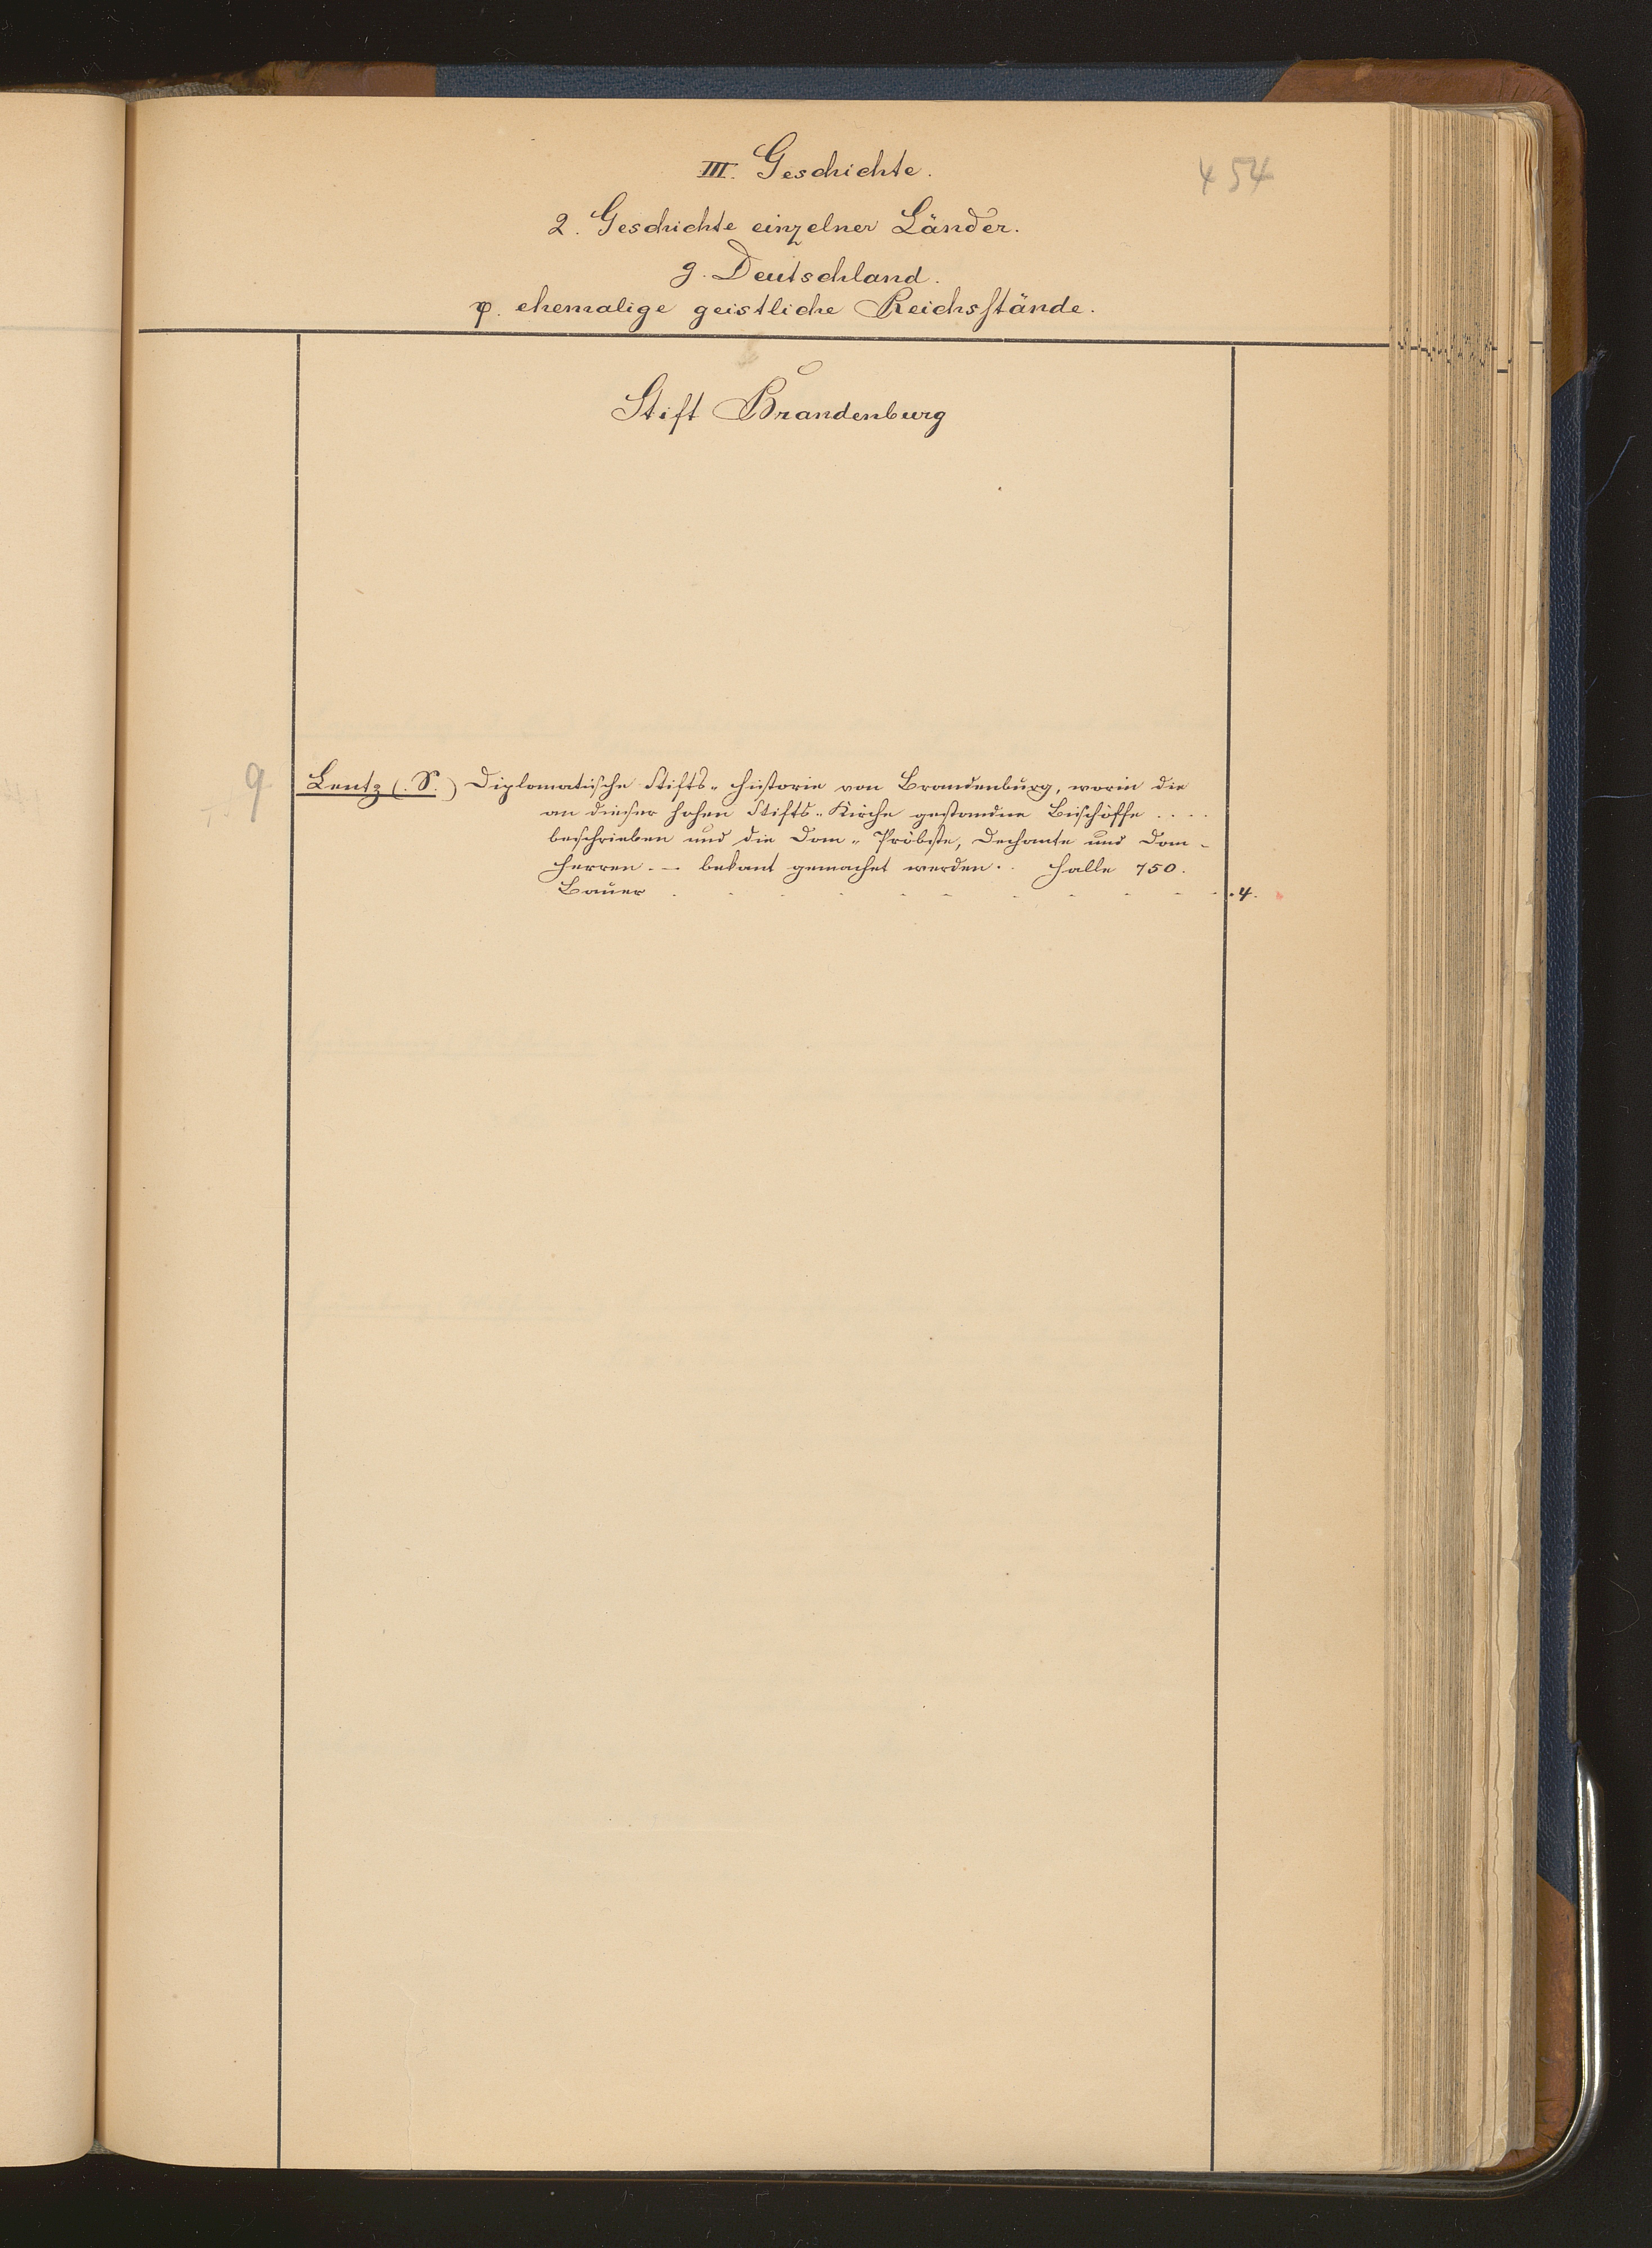 454
III. Geschichte.
2. Geschichte einzelner Länder.
g. Deutschland.
φ. ehemalige geistliche Reichsstände.
Stift Brandenburg
9 Lentz (S.) Diplomatische Stifts-Historie von Brandenburg, worin die
an dieser hohen Stifts-Kirche gestandne Bischöffe ....
beschrieben und die Dom-Pröbste, Dechante und Dom-
herren. — bekant gemachet werden. . Halle 750.
Bauer . . . . . . . . . . . 4.